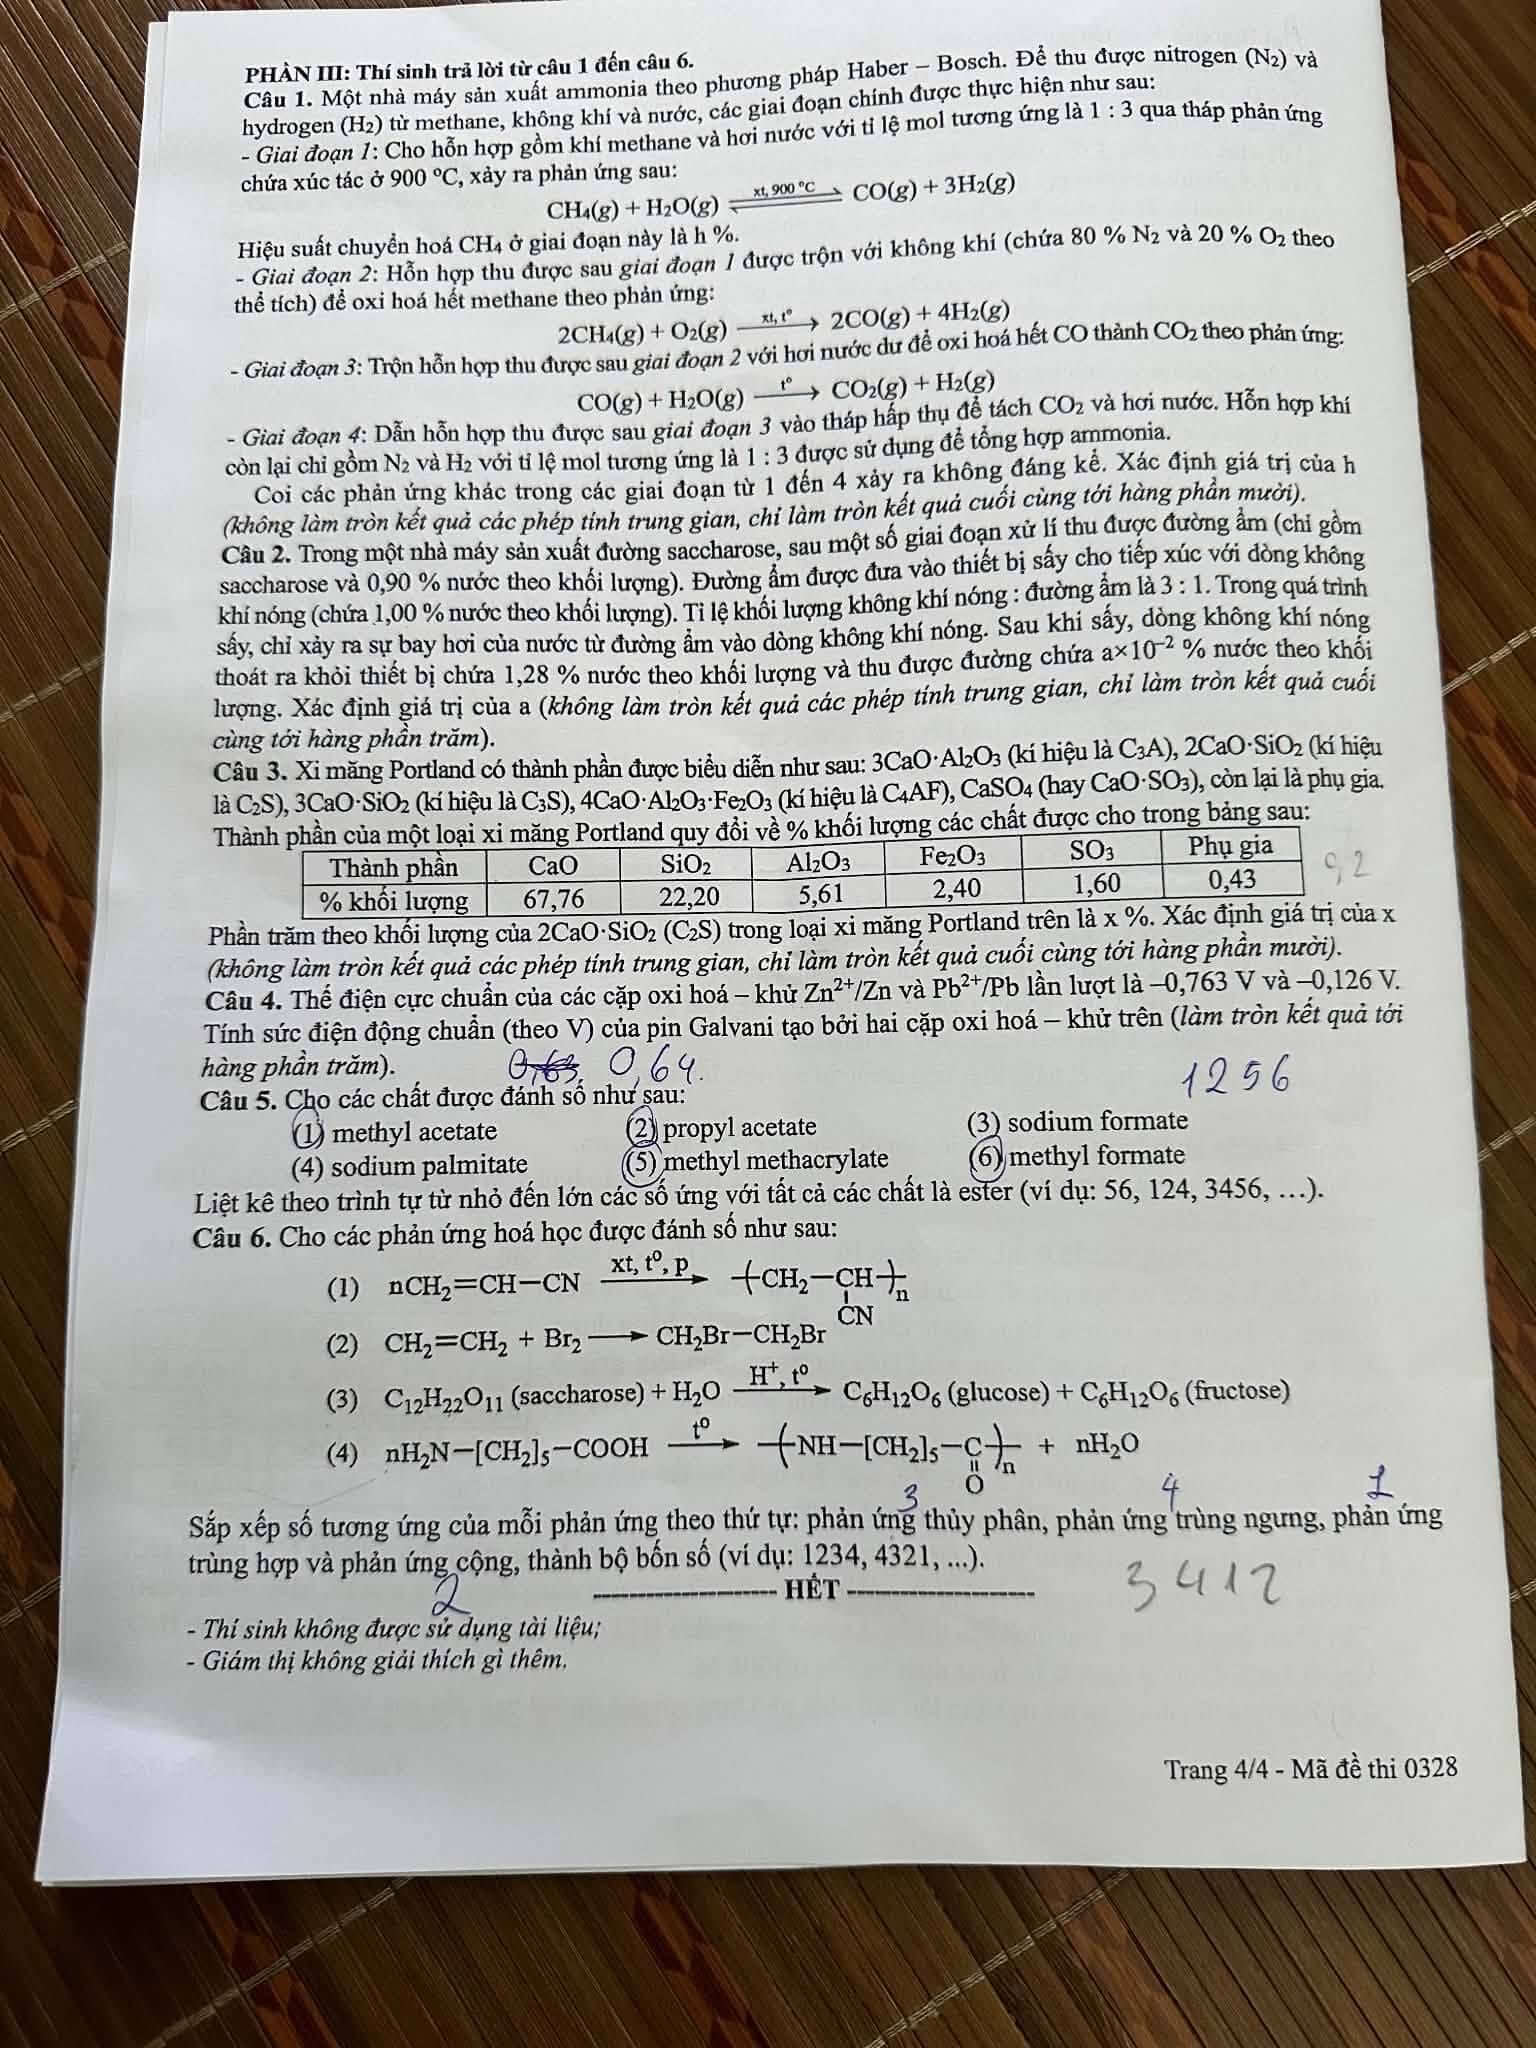 PHẦN III: Thí sinh trả lời từ câu 1 đến câu 6.
Câu 1. Một nhà máy sản xuất ammonia theo phương pháp Haber – Bosch. Để thu được nitrogen (N₂) và
hydrogen (H₂) từ methane, không khí và nước, các giai đoạn chính được thực hiện như sau:
- Giai đoạn 1: Cho hỗn hợp gồm khí methane và hơi nước với tỉ lệ mol tương ứng là 1 : 3 qua tháp phản ứng
chứa xúc tác ở 900 °C, xảy ra phản ứng sau:
CH₄(g) + H₂O(g) ⇌ (xt, 900 °C) CO(g) + 3H₂(g)
Hiệu suất chuyển hoá CH₄ ở giai đoạn này là h %.
- Giai đoạn 2: Hỗn hợp thu được sau giai đoạn 1 được trộn với không khí (chứa 80 % N₂ và 20 % O₂ theo
thể tích) để oxi hoá hết methane theo phản ứng:
2CH₄(g) + O₂(g) —xt, t°→ 2CO(g) + 4H₂(g)
- Giai đoạn 3: Trộn hỗn hợp thu được sau giai đoạn 2 với hơi nước dư để oxi hoá hết CO thành CO₂ theo phản ứng:
CO(g) + H₂O(g) —t°→ CO₂(g) + H₂(g)
- Giai đoạn 4: Dẫn hỗn hợp thu được sau giai đoạn 3 vào tháp hấp thụ để tách CO₂ và hơi nước. Hỗn hợp khí
còn lại chỉ gồm N₂ và H₂ với tỉ lệ mol tương ứng là 1 : 3 được sử dụng để tổng hợp ammonia.
Coi các phản ứng khác trong các giai đoạn từ 1 đến 4 xảy ra không đáng kể. Xác định giá trị của h
(không làm tròn kết quả các phép tính trung gian, chỉ làm tròn kết quả cuối cùng tới hàng phần mười).
Câu 2. Trong một nhà máy sản xuất đường saccharose, sau một số giai đoạn xử lí thu được đường ẩm (chỉ gồm
saccharose và 0,90 % nước theo khối lượng). Đường ẩm được đưa vào thiết bị sấy cho tiếp xúc với dòng không
khí nóng (chứa 1,00 % nước theo khối lượng). Tỉ lệ khối lượng không khí nóng : đường ẩm là 3 : 1. Trong quá trình
sấy, chỉ xảy ra sự bay hơi của nước từ đường ẩm vào dòng không khí nóng. Sau khi sấy, dòng không khí nóng
thoát ra khỏi thiết bị chứa 1,28 % nước theo khối lượng và thu được đường chứa a×10⁻² % nước theo khối
lượng. Xác định giá trị của a (không làm tròn kết quả các phép tính trung gian, chỉ làm tròn kết quả cuối
cùng tới hàng phần trăm).
Câu 3. Xi măng Portland có thành phần được biểu diễn như sau: 3CaO·Al₂O₃ (kí hiệu là C₃A), 2CaO·SiO₂ (kí hiệu
là C₂S), 3CaO·SiO₂ (kí hiệu là C₃S), 4CaO·Al₂O₃·Fe₂O₃ (kí hiệu là C₄AF), CaSO₄ (hay CaO·SO₃), còn lại là phụ gia.
Thành phần của một loại xi măng Portland quy đổi về % khối lượng các chất được cho trong bảng sau:
Thành phần CaO SiO₂ Al₂O₃ Fe₂O₃ SO₃ Phụ gia
% khối lượng 67,76 22,20 5,61 2,40 1,60 0,43 9,2
Phần trăm theo khối lượng của 2CaO·SiO₂ (C₂S) trong loại xi măng Portland trên là x %. Xác định giá trị của x
(không làm tròn kết quả các phép tính trung gian, chỉ làm tròn kết quả cuối cùng tới hàng phần mười).
Câu 4. Thế điện cực chuẩn của các cặp oxi hoá – khử Zn²⁺/Zn và Pb²⁺/Pb lần lượt là –0,763 V và –0,126 V.
Tính sức điện động chuẩn (theo V) của pin Galvani tạo bởi hai cặp oxi hoá – khử trên (làm tròn kết quả tới
hàng phần trăm). 0,63 0,64.
Câu 5. Cho các chất được đánh số như sau: 1256
(1) methyl acetate (2) propyl acetate (3) sodium formate
(4) sodium palmitate (5) methyl methacrylate (6) methyl formate
Liệt kê theo trình tự từ nhỏ đến lớn các số ứng với tất cả các chất là ester (ví dụ: 56, 124, 3456, …).
Câu 6. Cho các phản ứng hoá học được đánh số như sau:
(1) nCH₂=CH–CN —xt, t°, p→ –(CH₂–CH(CN))–n
(2) CH₂=CH₂ + Br₂ → CH₂Br–CH₂Br
(3) C₁₂H₂₂O₁₁ (saccharose) + H₂O —H⁺, t°→ C₆H₁₂O₆ (glucose) + C₆H₁₂O₆ (fructose)
(4) nH₂N–[CH₂]₅–COOH —t°→ –(NH–[CH₂]₅–C(=O))–n + nH₂O
3 4 1
Sắp xếp số tương ứng của mỗi phản ứng theo thứ tự: phản ứng thủy phân, phản ứng trùng ngưng, phản ứng
trùng hợp và phản ứng cộng, thành bộ bốn số (ví dụ: 1234, 4321, ...).
2 3412
HẾT
- Thí sinh không được sử dụng tài liệu;
- Giám thị không giải thích gì thêm.
Trang 4/4 - Mã đề thi 0328